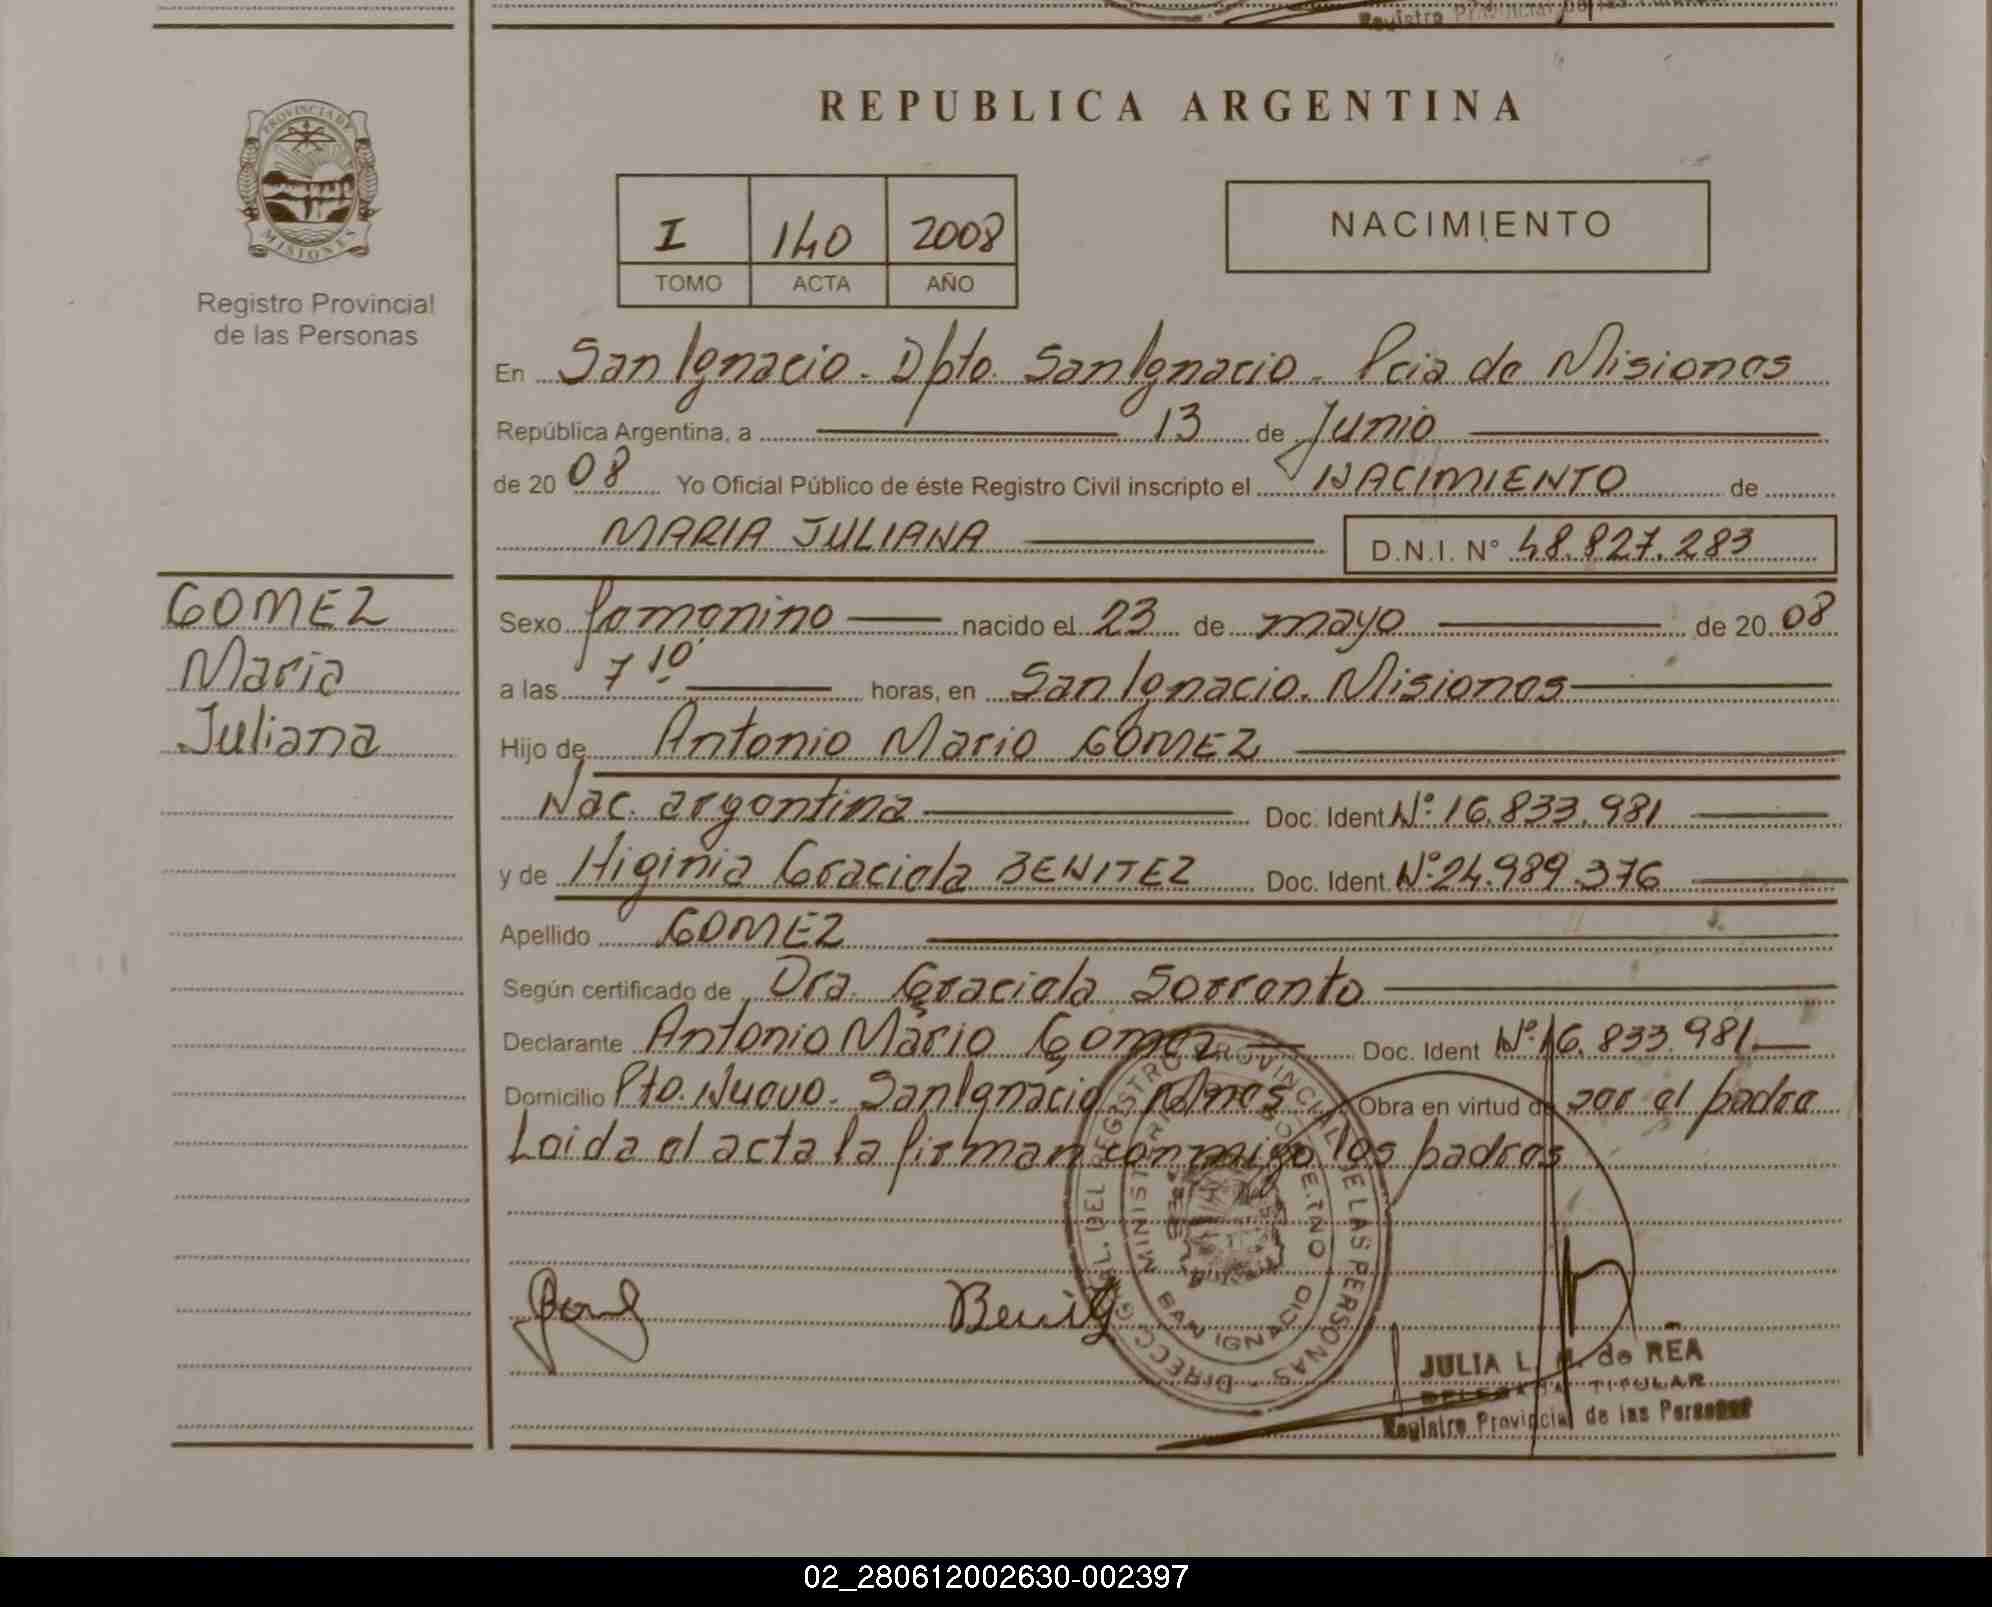 Registro Provincial de las Personas
REPUBLICA ARGENTINA
PROVINCIA DE
MISIONES
Registro Provincial
de las Personas
I 140 2008
TOMO ACTA AÑO
NACIMIENTO
En San Ignacio. Dpto. San Ignacio. Pcia de Misiones
República Argentina, a 13 de Junio
de 20 08 Yo Oficial Público de éste Registro Civil inscripto el NACIMIENTO de
MARIA JULIANA D.N.I. N° 48.827.283
GOMEZ
Maria
Juliana
Sexo femenino nacido el 23 de mayo de 20 08
a las 7 10' horas, en San Ignacio. Misiones
Hijo de Antonio Mario GOMEZ
Nac. argentina Doc. Ident N°: 16.833.981
y de Higinia Graciela BENITEZ Doc. Ident N°: 24.989.376
Apellido GOMEZ
Según certificado de Dra. Graciela Sorrento
Declarante Antonio Mario Gomez Doc. Ident N°: 16.833.981
Domicilio Pto. Nuevo. San Ignacio Obra en virtud de ser el padre
Leida el acta la firman conmigo los padres
DIRECC. GRAL. DEL REGISTRO PROVINCIAL DE LAS PERSONAS
SAN IGNACIO
JULIA L. M. de REA
DELEGADA TITULAR
Registro Provincial de las Personas
02_280612002630-002397